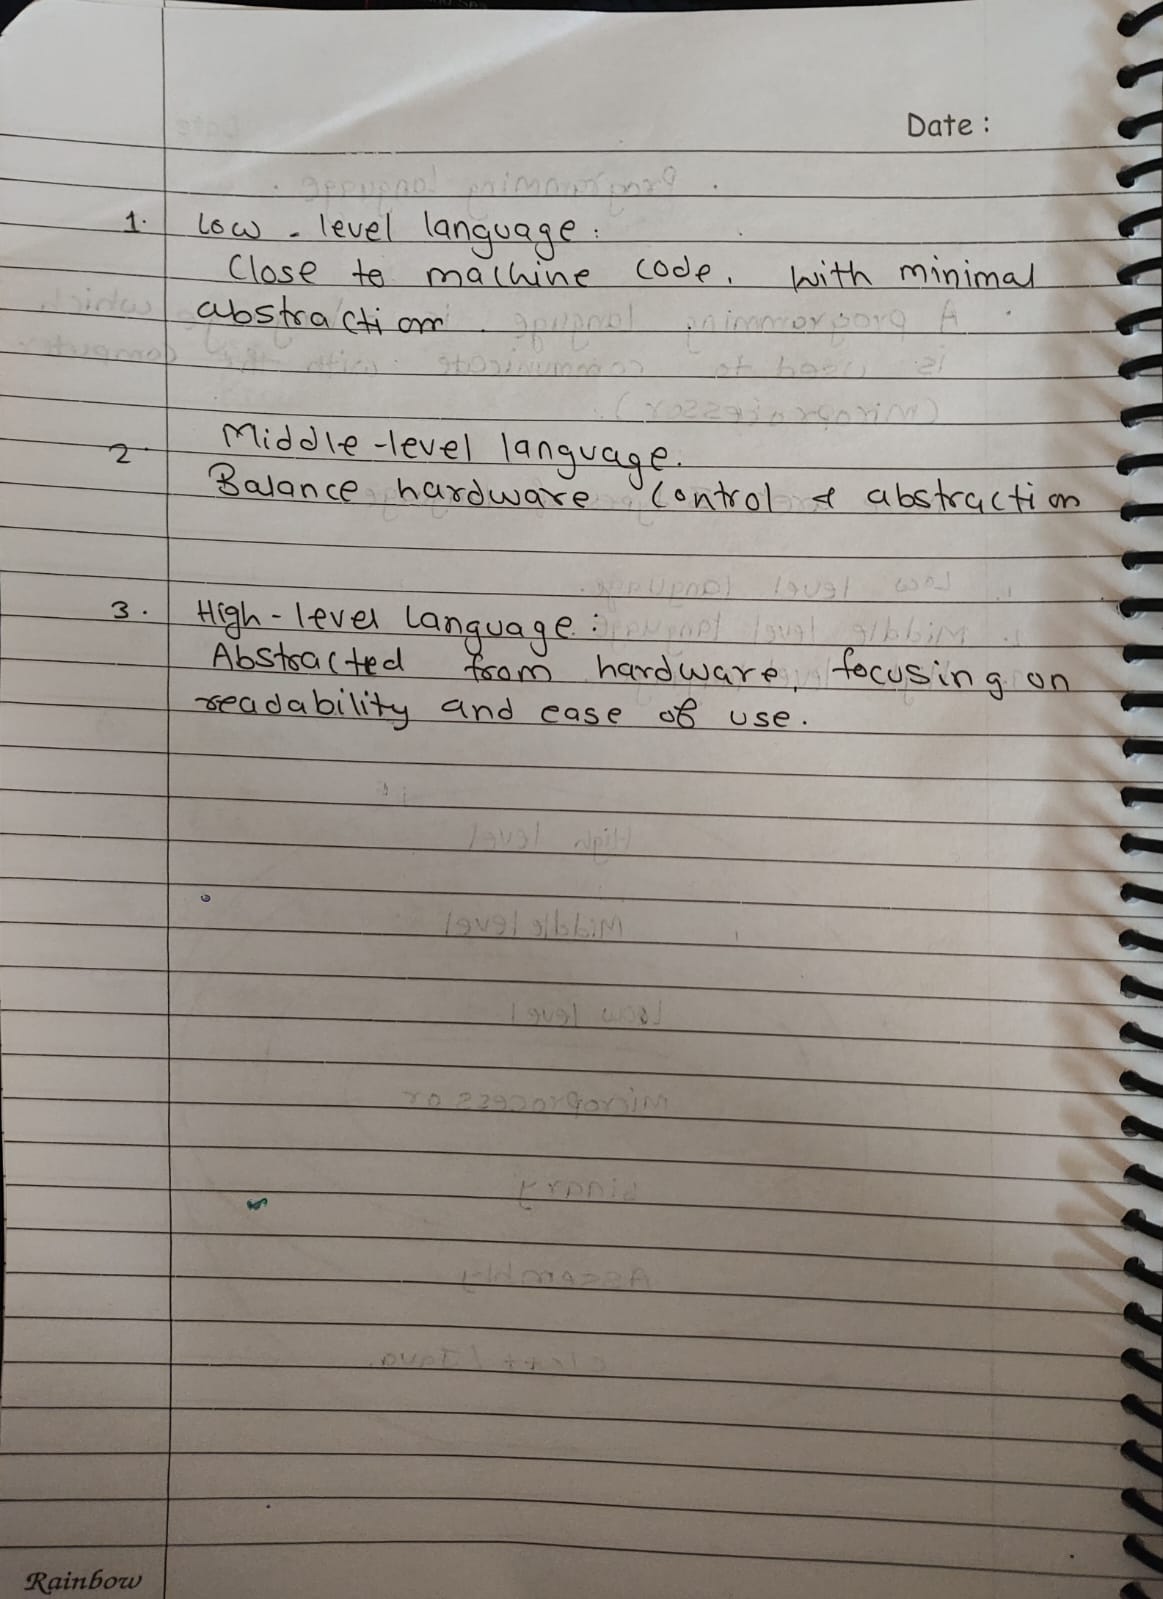 Date :
1. Low - level language :
Close to machine code, with minimal
abstraction.
2 Middle-level language.
Balance hardware control & abstraction
3. High-level language :
Abstracted from hardware, focusing on
readability and ease of use.
Rainbow